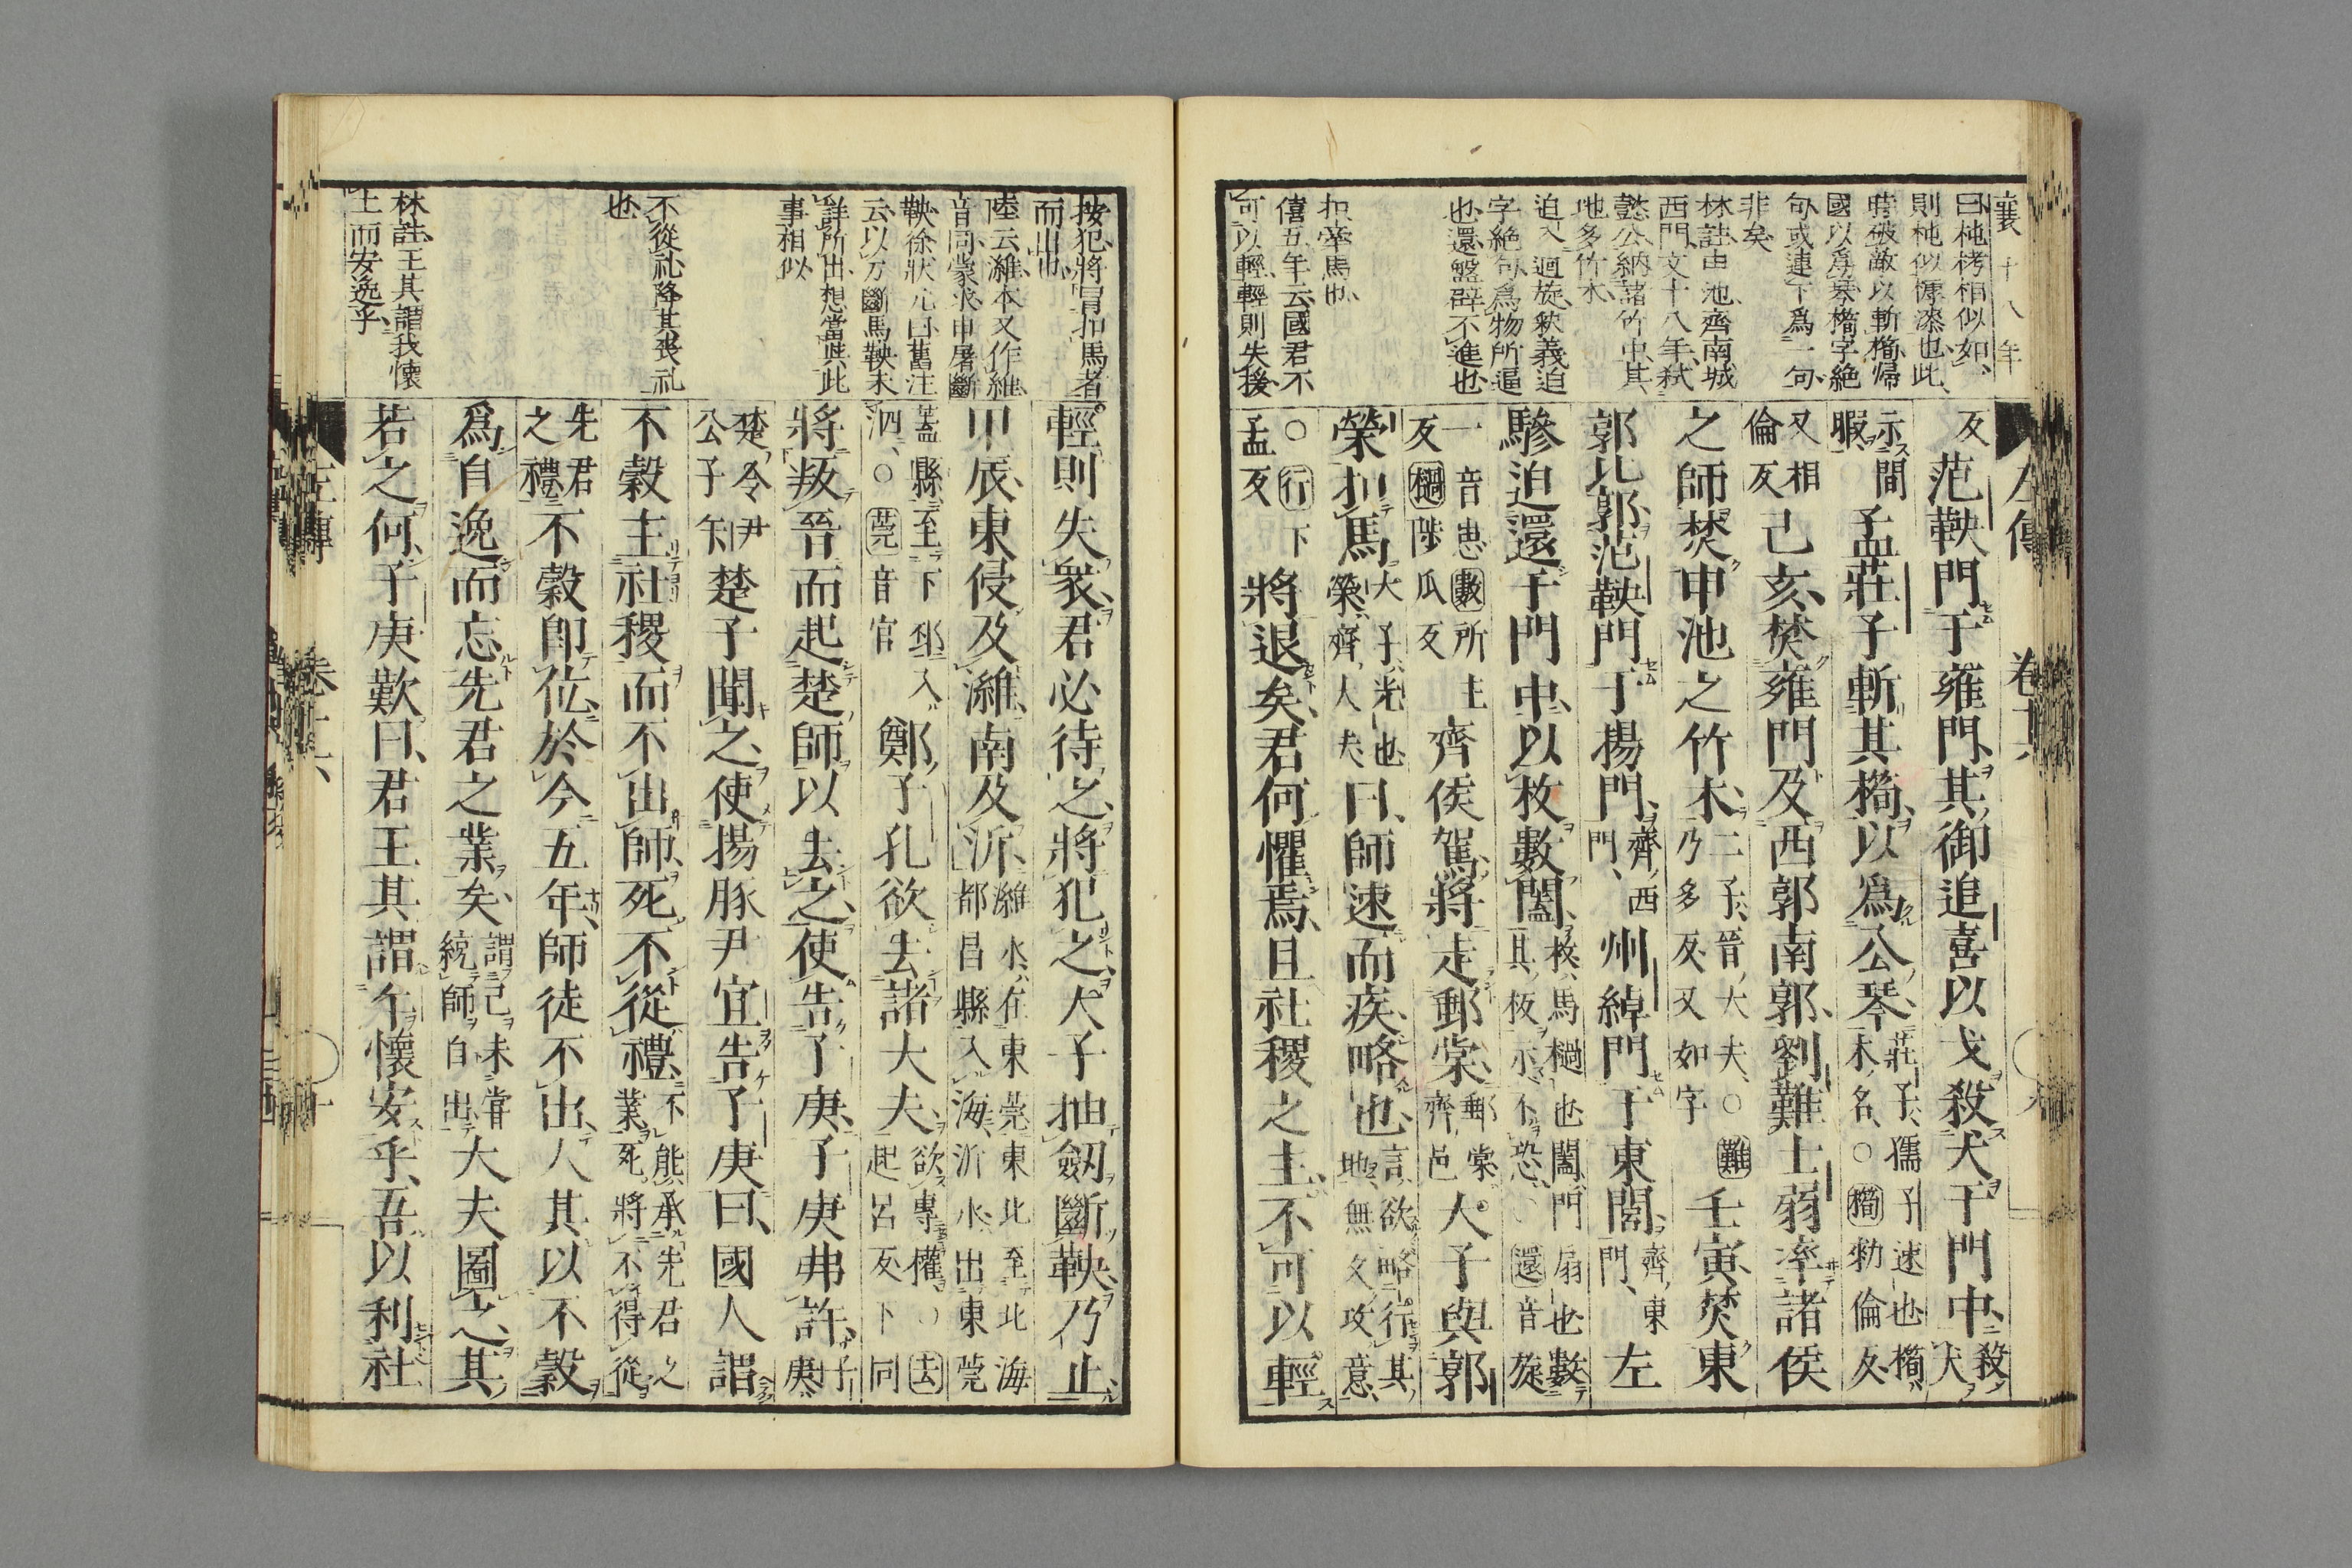 襄十八年
曰杶栲相似如
則杶似㯶漆也此
時破敵以斬橁歸
國以爲琴橁字絶
句或連下爲一句
非矣
林註申池齊南城
西門文十八年弑
懿公納諸竹中其
地多竹木
迫入迴旋釈義迫
字絶句爲物所逼
也還盤辟不進也
扣牽馬也
僖五年云國君不
可以輕輕則失援
左傳 卷十六
反范鞅門于雍門其御追喜以戈殺犬于門中殺犬
示間暇孟莊子斬其橁以爲公琴莊子孺子速也橁木名○橁勑倫反
又相倫反己亥焚雍門及西郭南郭劉難士弱率諸侯
之師焚申池之竹木二子晉大夫○難乃多反又如字壬寅焚東
郭北郭范鞅門于揚門齊西門州綽門于東閭齊東門左
驂迫還于門中以枚數闔枚馬檛也闔門扇也數其板示不恐○還音旋
一音患數所主反檛陟瓜反齊侯駕將走郵棠郵棠齊邑大子與郭
榮扣馬大子光也榮齊大夫曰師速而疾略也言欲略行其地無久攻意
○行下孟反將退矣君何懼焉且社稷之主不可以輕
按犯將冐扣馬者
而出也
陸云濰本又作維
音同蒙求申屠斷
鞅徐狀元曰舊注
云以刀斷馬鞅未
詳所出想當然此
事相似
不從礼降其喪礼
也
林註王其謂我懷
土而安逸乎
輕則失衆君必待之將犯之大子抽劒斷鞅乃止
甲辰東侵及濰南及沂濰水在東莞東北至北海都昌縣入海沂水出東莞
蓋縣至下邳入泗○莞音官鄭子孔欲去諸大夫欲專權○去起呂反下同
將叛晉而起楚師以去之使告子庚子庚弗許子庚
楚令尹公子午楚子聞之使揚豚尹宜告子庚曰國人謂
不穀主社稷而不出師死不從禮不能承先君之業死將不得從
先君之禮不穀即位於今五年師徒不出人其以不穀
爲自逸而忘先君之業矣謂己未嘗統師自出大夫圖之其
若之何子庚歎曰君王其謂午懷安乎吾以利社
左傳 卷十六